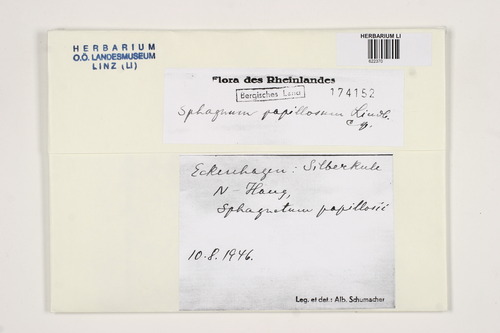 HERBARIUM
O.Ö. LANDESMUSEUM
LINZ (LI)
HERBARIUM LI
622370
Flora des Rheinlandes
Bergisches Land
174152
Sphagnum papillosum Lindb.
c. g.
Eckenhagen: Silberkule
N-Hang,
Sphagnetum papillosii
10.8.1946.
Leg. et det.: Alb. Schumacher